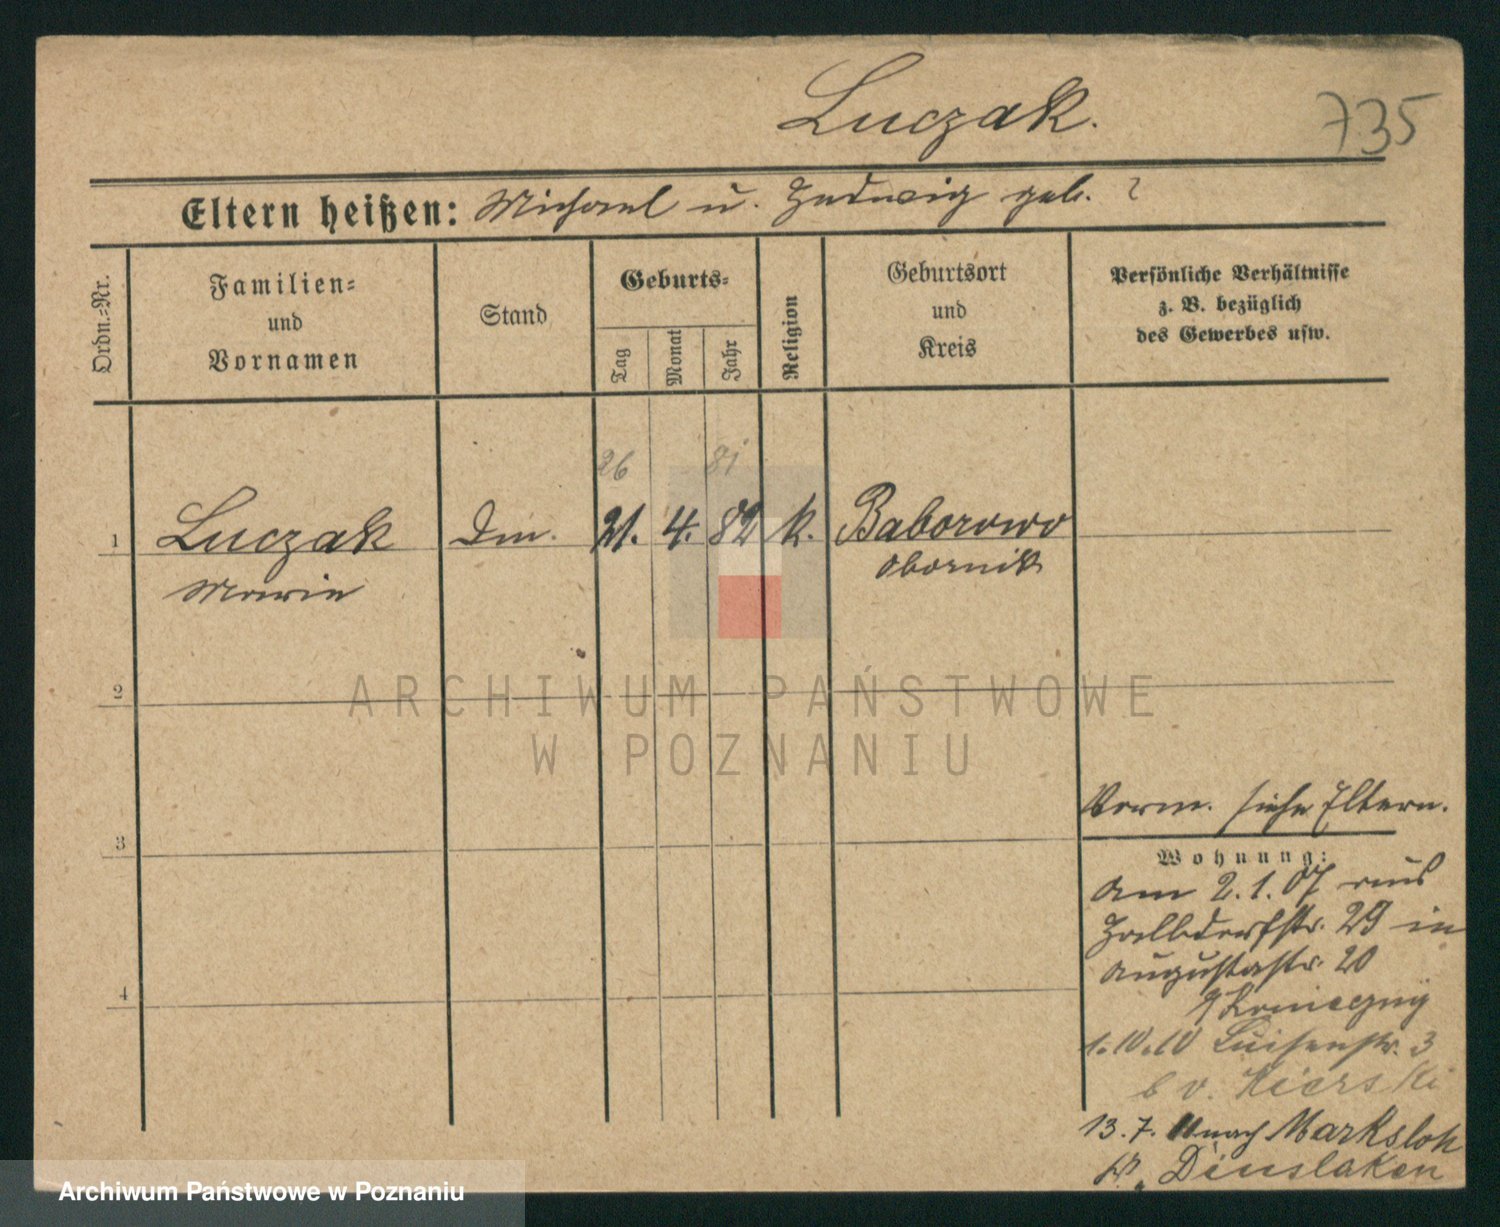 Luczak.
735
Eltern heißen: Michael u. Hedwig geb. ?
Ordn.-Nr.
Familien- und Vornamen
Stand
Geburts-
Tag
Monat
Jahr
Religion
Geburtsort und Kreis
Persönliche Verhältnisse
z. B. bezüglich
des Gewerbes usw.
26 81
1 Luczak Dm. 21. 4. 82 k. Baborowo
Marie Obornik
2
3
4
Verm. siehe Eltern.
Wohnung:
Am 2.1.07 aus
29 in
Augustastr. 20
1.10.10 Luisenstr. 3
b v. Kierski
13. 7. 11 nach Marksloh
Kr. Dinslaken
ARCHIWUM PAŃSTWOWE
W POZNANIU
Archiwum Państwowe w Poznaniu